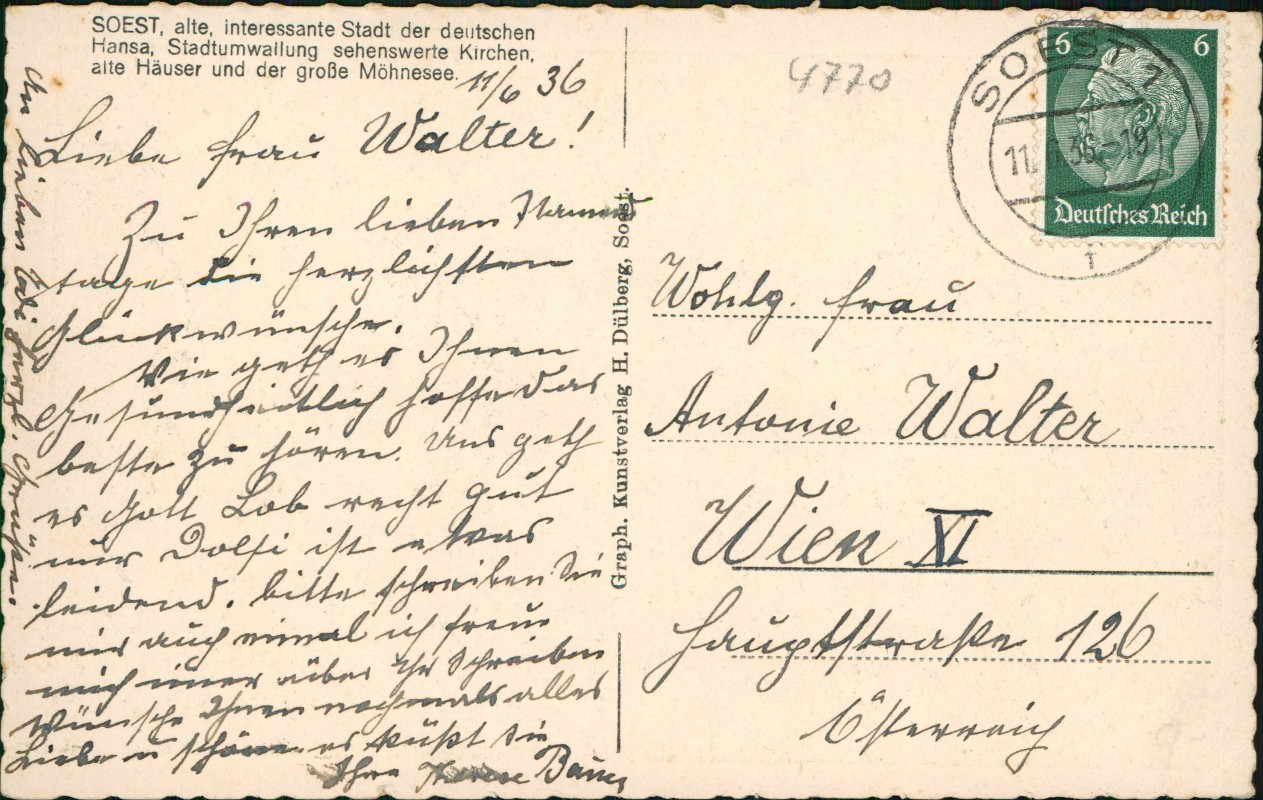 SOEST, alte, interessante Stadt der deutschen
Hansa, Stadtumwallung sehenswerte Kirchen,
alte Häuser und der große Möhnesee.
11/6 36
Liebe Frau Walter!
Zu Ihren lieben Namens
tage die herzlichsten
Glückwünsche.
Wie geth es Ihnen
Gesundheitlich hoffe das
beste zu hören. Uns geth
es Gott Lob recht gut
nur Dolfi ist etwas
leidend. bitte schreiben Sie
mir auch einmal ich freue
mich imer über Ihr Schreiben
Wünsche Ihnen nochmals alles
Liebe u schöne es küßt Sie
Ihre Baur
An lieben Edi herzl. Grüße.
Graph. Kunstverlag H. Dülberg, Soest.
4770
SOEST 1
11. 36.-19
6 6
Deutsches Reich
Wohlg. Frau
Antonie Walter
Wien XI
Hauptstraße 126
Österreich